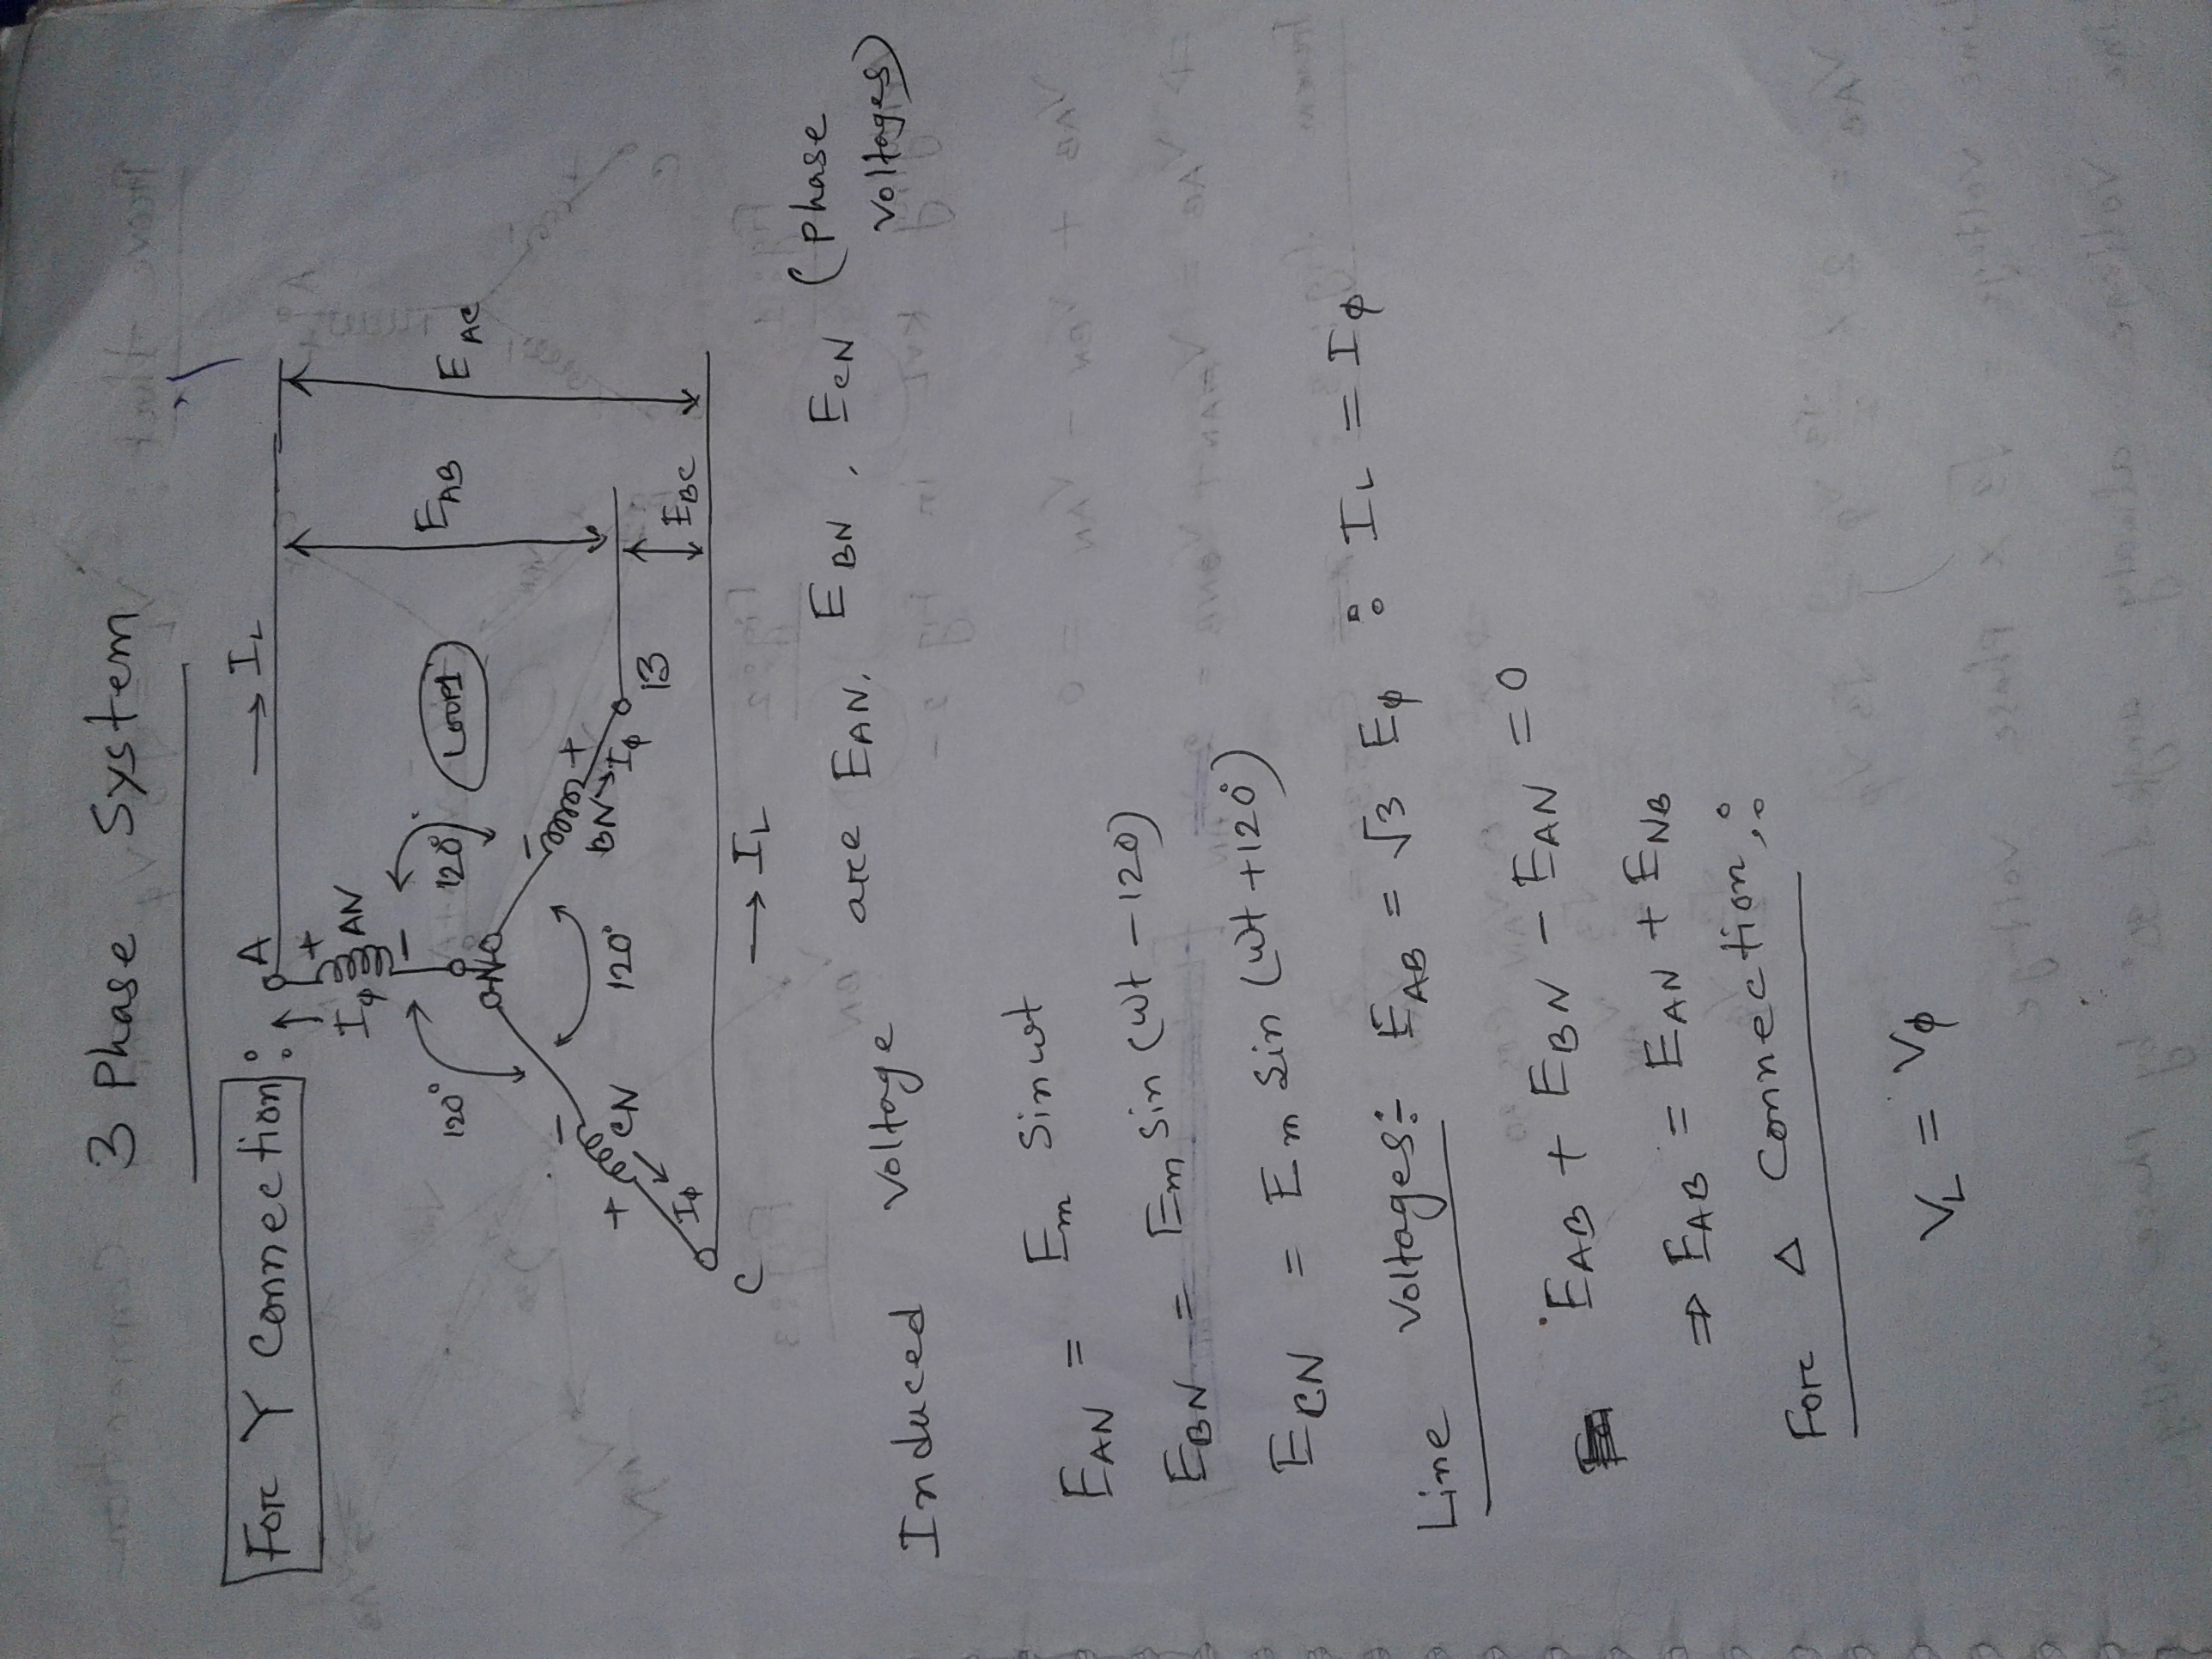 3 Phase System
For Y Connection:
A
→ I_L
I_φ
+
AN
-
120°
120°
LOOP1
E_AB
E_AC
N
-
+
CN
120°
-
+
BN
→ I_φ
B
I_φ
E_BC
C
→ I_L
Induced voltage are E_AN, E_BN, E_CN (phase voltages)
E_AN = E_m sin wt
E_BN = E_m sin (wt - 120)
E_CN = E_m sin (wt + 120°)
Line voltages: E_AB = √3 E_φ : I_L = I_φ
E_AB + E_BN - E_AN = 0
⇒ E_AB = E_AN + E_NB
For Δ Connection,:
V_L = V_φ